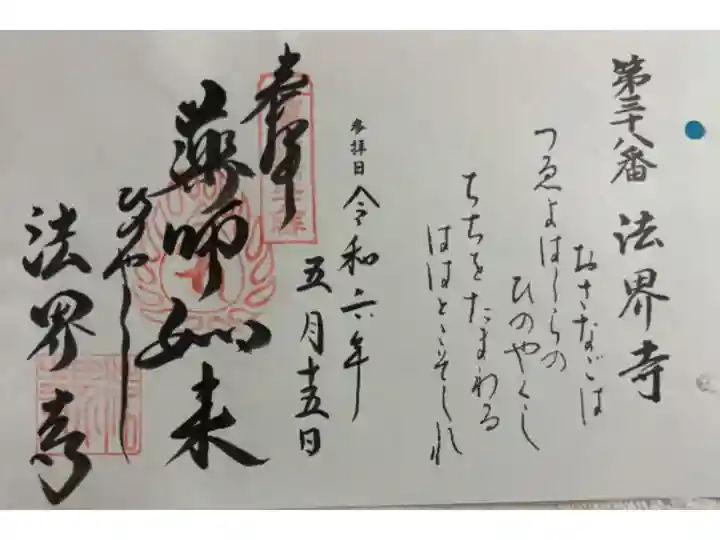 第三十八番 法界寺
おさなごは
つゑよはしらの
ひのやくし
ちちをたまわる
ははとこそしれ
参拝日 令和六年
五月十五日
奉拝
薬師如来
ひのやくし
法界寺